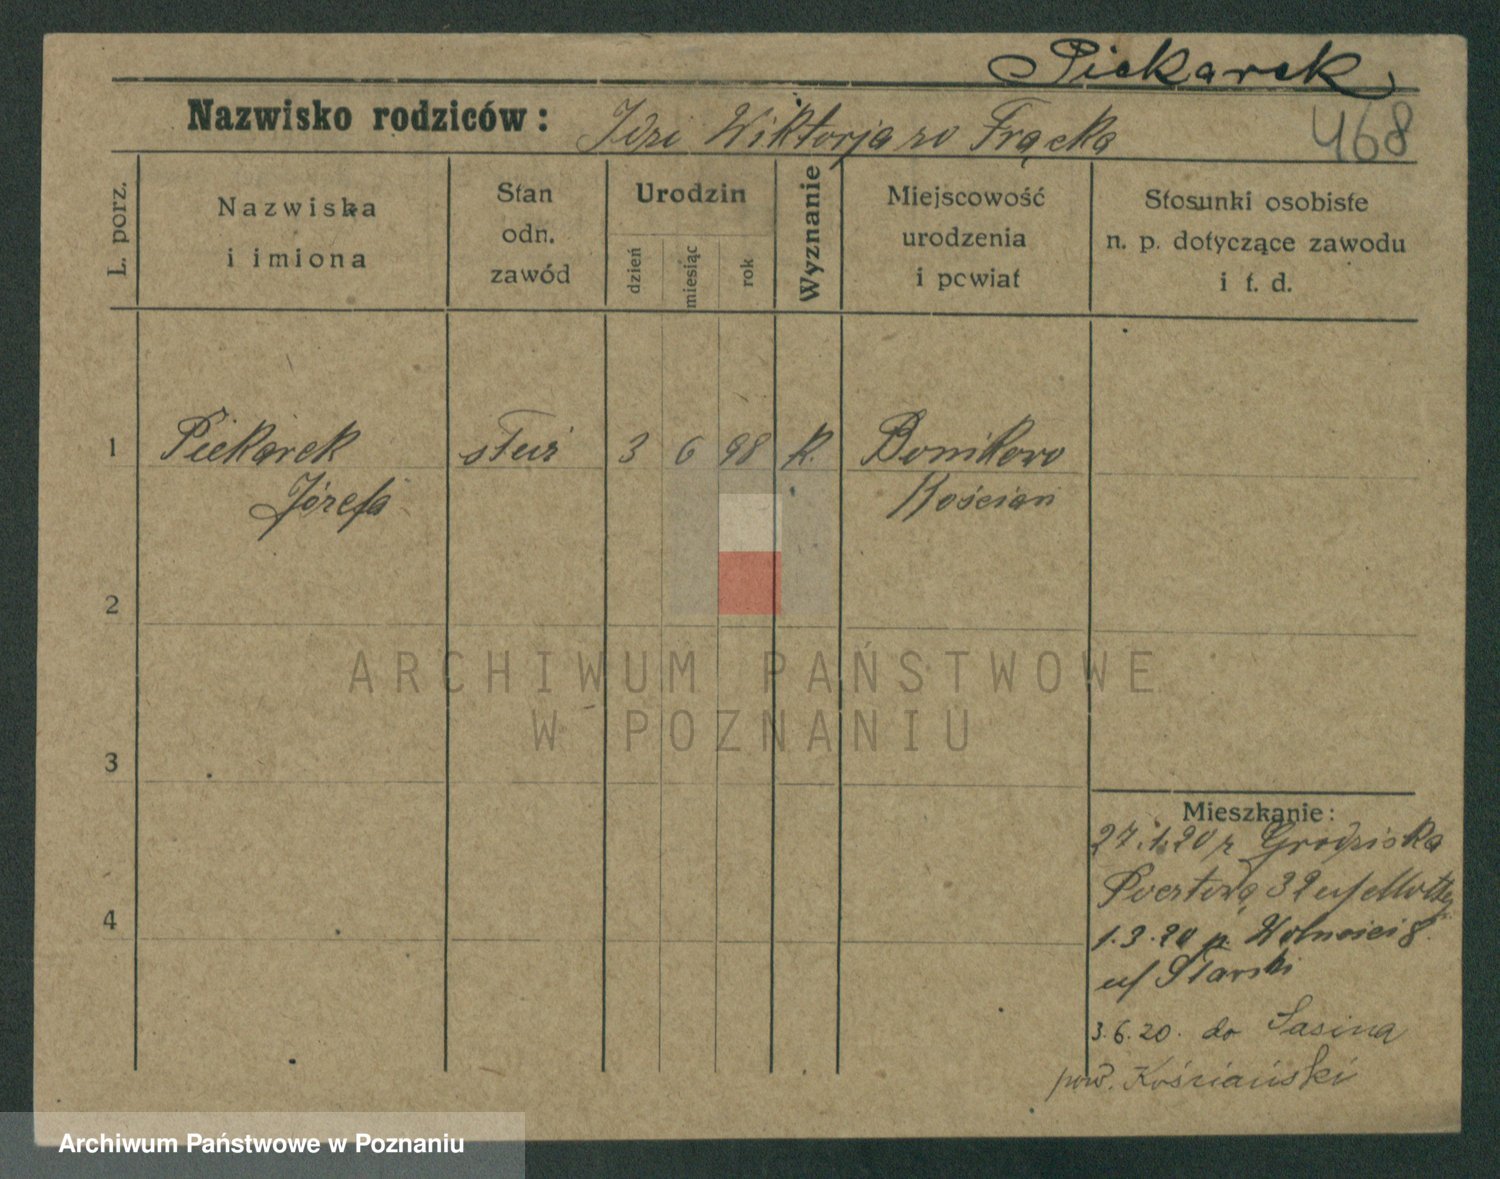 Piekarek
468
Nazwisko rodziców: Idzi Wiktorja zo Frącka
L. porz.
Nazwiska
i imiona
Stan
odn.
zawód
Urodzin
dzień
miesiąc
rok
Wyznanie
Miejscowość
urodzenia
i powiat
Stosunki osobiste
n. p. dotyczące zawodu
i t. d.
1 Piekarek służ 3 6 98 k. Bonikowo
Józefa Kościan
2
3
4
ARCHIWUM PAŃSTWOWE
W POZNANIU
Mieszkanie:
27.1.20 z Grodziska
32
1.3.20 p. Wolności 8
u/ Słarski
3.6.20. do Sasina
pow. Kościański
Archiwum Państwowe w Poznaniu